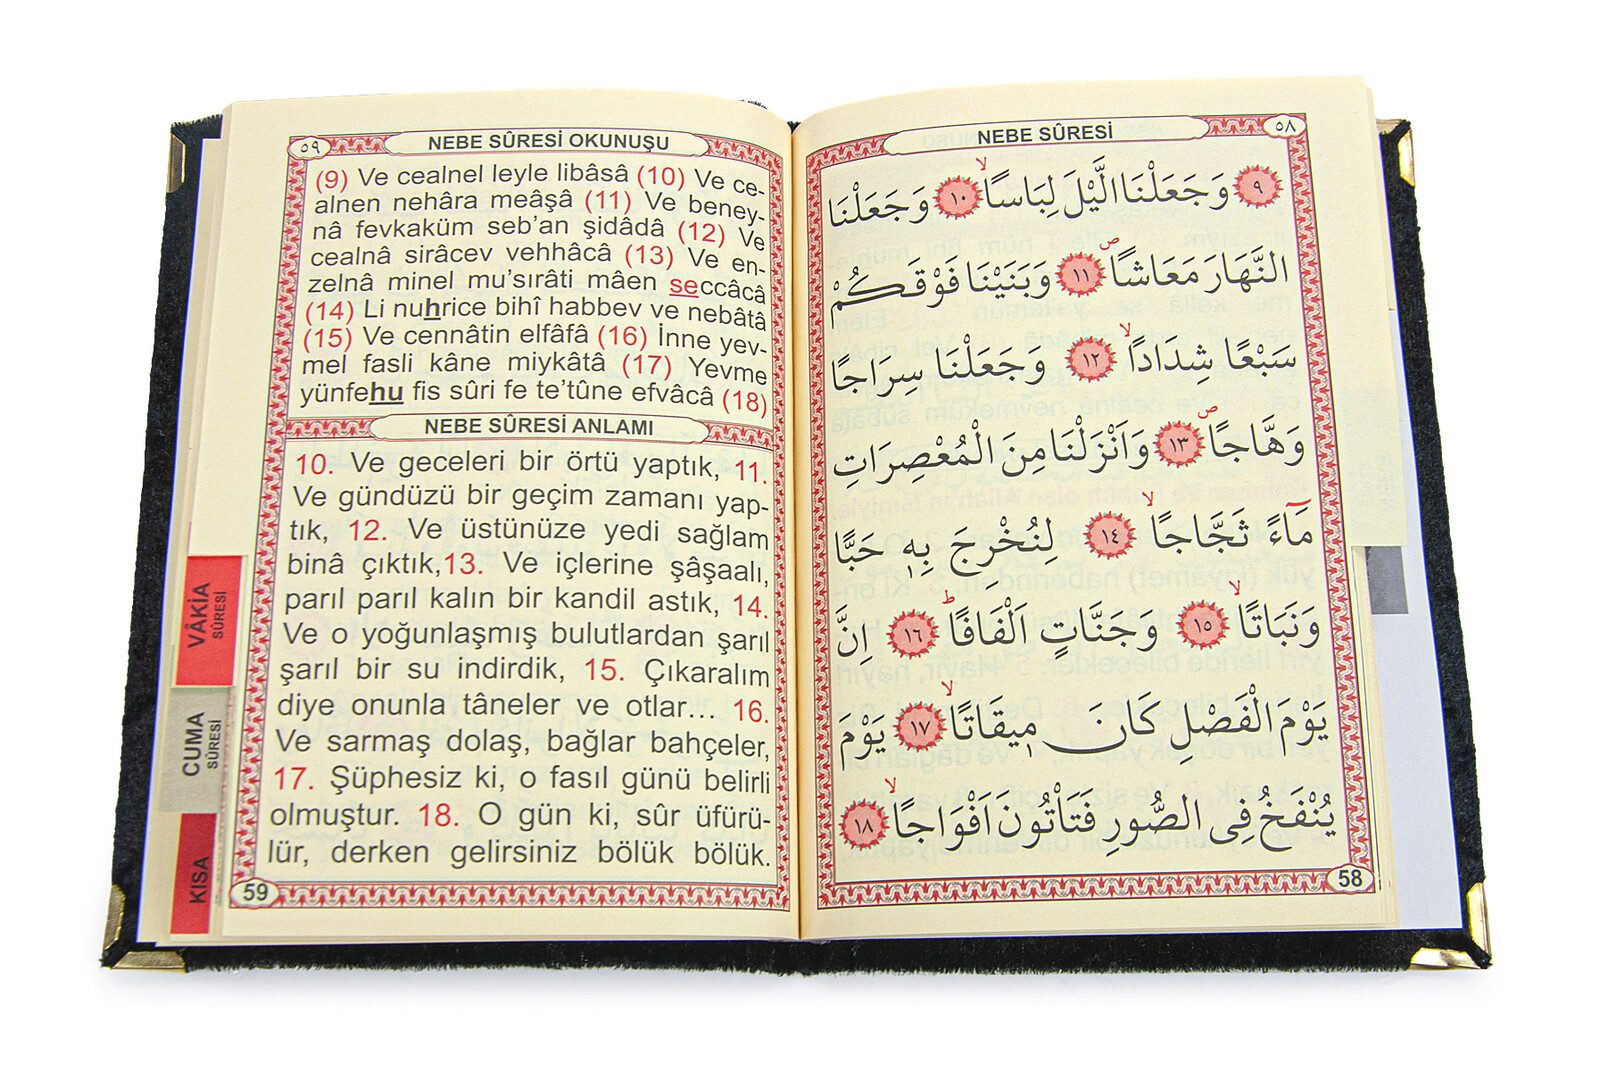 ٥٩
NEBE SÛRESİ OKUNUŞU
(9) Ve cealnel leyle libâsâ (10) Ve ce-
alnen nehâra meâşâ (11) Ve beney-
nâ fevkaküm seb'an şidâdâ (12) Ve
cealnâ sirâcev vehhâcâ (13) Ve en-
zelnâ minel mu'sırâti mâen seccâcâ
(14) Li nuhrice bihî habbev ve nebâtâ
(15) Ve cennâtin elfâfâ (16) İnne yev-
mel fasli kâne miykâtâ (17) Yevme
yünfehu fis sûri fe te'tûne efvâcâ (18)
NEBE SÛRESİ ANLAMI
10. Ve geceleri bir örtü yaptık, 11.
Ve gündüzü bir geçim zamanı yap-
tık, 12. Ve üstünüze yedi sağlam
binâ çıktık,13. Ve içlerine şâşaalı,
parıl parıl kalın bir kandil astık, 14.
Ve o yoğunlaşmış bulutlardan şarıl
şarıl bir su indirdik, 15. Çıkaralım
diye onunla tâneler ve otlar... 16.
Ve sarmaş dolaş, bağlar bahçeler,
17. Şüphesiz ki, o fasıl günü belirli
olmuştur. 18. O gün ki, sûr üfürü-
lür, derken gelirsiniz bölük bölük.
59
VÂKİA
SÛRESİ
CUMA
SÛRESİ
KISA
٥٨
NEBE SÛRESİ
٩ وَجَعَلْنَا الَّيْلَ لِبَاسًاۙ ١٠ وَجَعَلْنَا
النَّهَارَ مَعَاشًاۖ ١١ وَبَنَيْنَا فَوْقَكُمْ
سَبْعًا شِدَادًاۙ ١٢ وَجَعَلْنَا سِرَاجًا
وَهَّاجًاۖ ١٣ وَاَنْزَلْنَا مِنَ الْمُعْصِرَاتِ
مَٓاءً ثَجَّاجًاۙ ١٤ لِنُخْرِجَ بِهٖ حَبًّا
وَنَبَاتًاۙ ١٥ وَجَنَّاتٍ اَلْفَافًاؕ ١٦ اِنَّ
يَوْمَ الْفَصْلِ كَانَ مٖيقَاتًاۙ ١٧ يَوْمَ
يُنْفَخُ فِى الصُّورِ فَتَاْتُونَ اَفْوَاجًاۙ ١٨
58